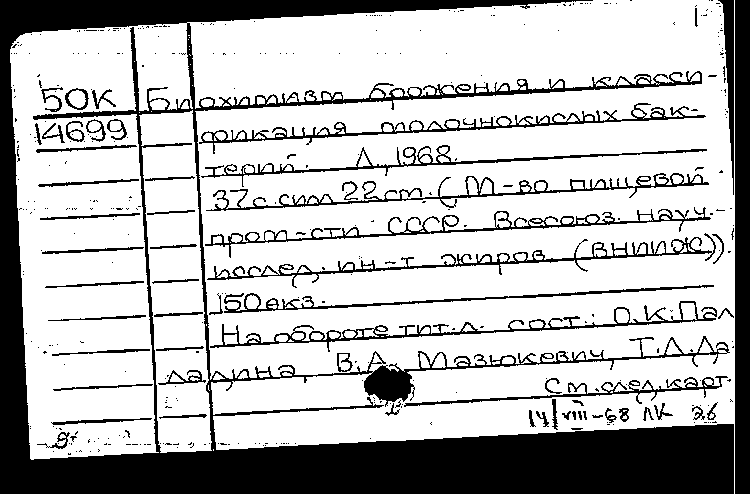 50К Биохимизм брожения и класси-
14699 фикация молочнокислых бак-
терий. Л., 1968.
37с. сил 22см. (М-во пищевой
пром-сти СССР. Всесоюз. науч.-
исслед. ин-т жиров. (ВНИИЖ)).
150экз.
На обороте тит. л. сост.: О.К. Пал
ладина, В.А. Мазюкевич, Т.Л. Да
См. след. карт
14/VIII-68 ЛК 26